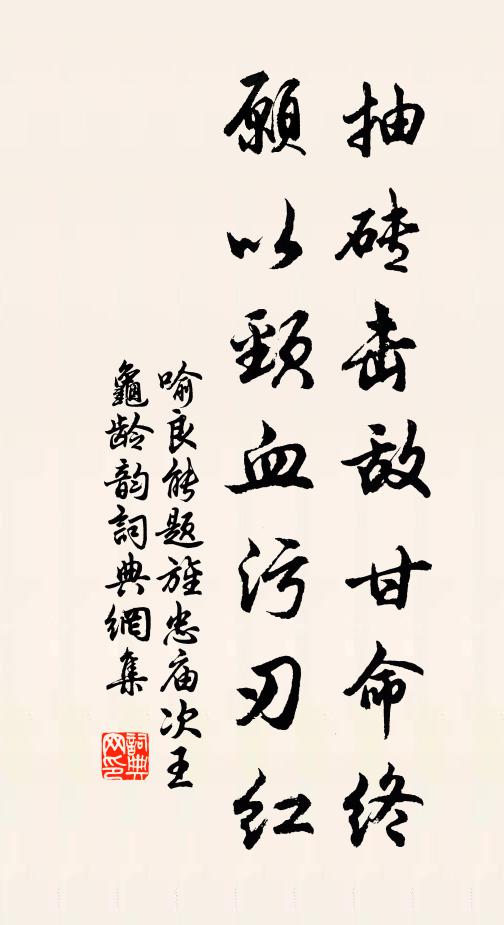 抽砖击敌甘命终
愿以颈血污刃红
喻良能题旌忠庙次王
龜龄韵詞典網集
詞典网印